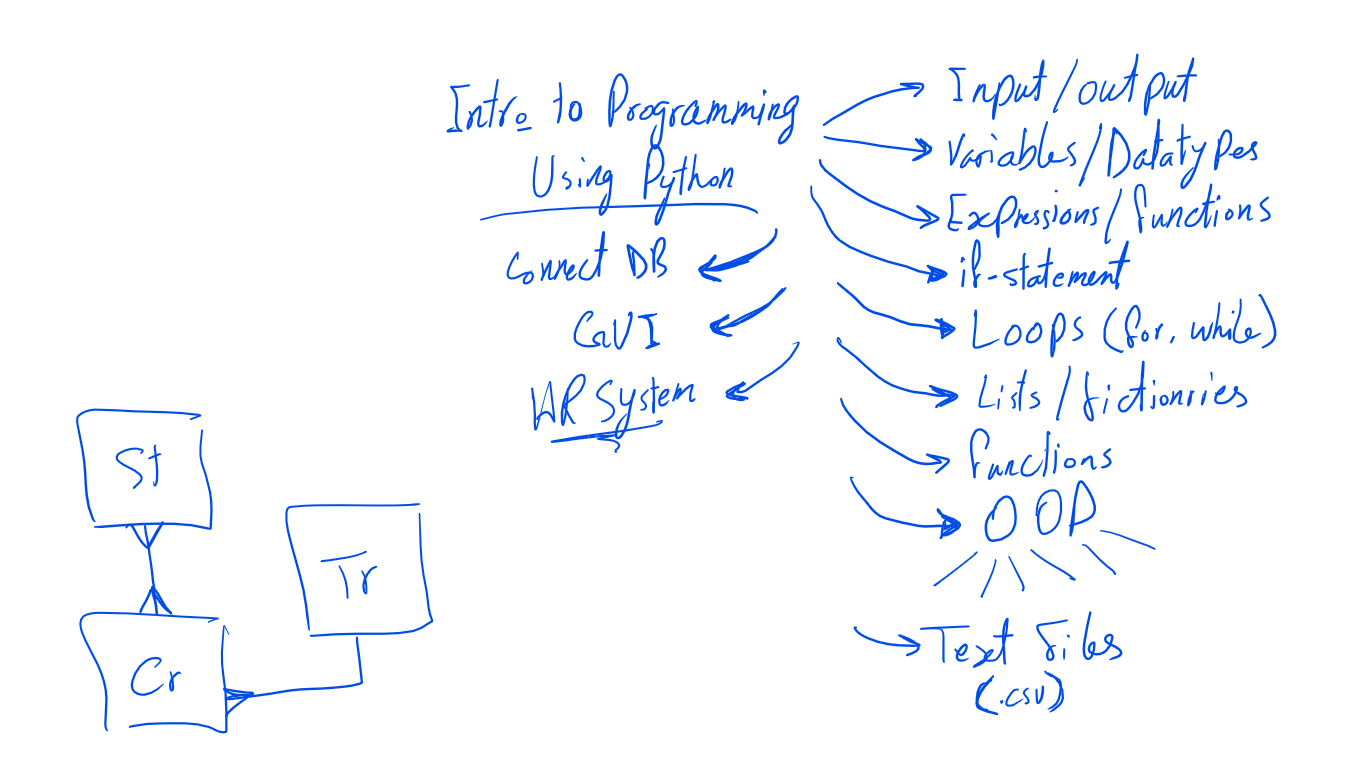 Intro to Programming
Using Python
Connect DB
GUI
HR System
Input/output
Variables/Datatypes
Expressions/functions
if-statement
Loops (for, while)
Lists/dictionries
functions
OOP
Text files
(.csv)
St
Tr
Cr